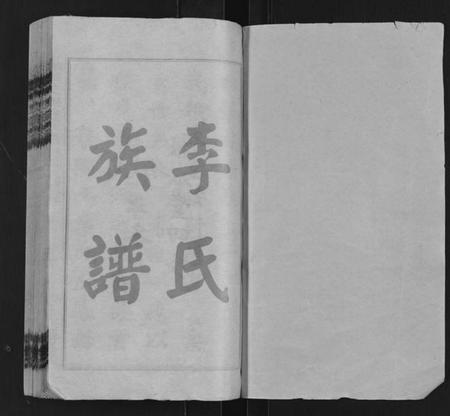 李氏
族譜